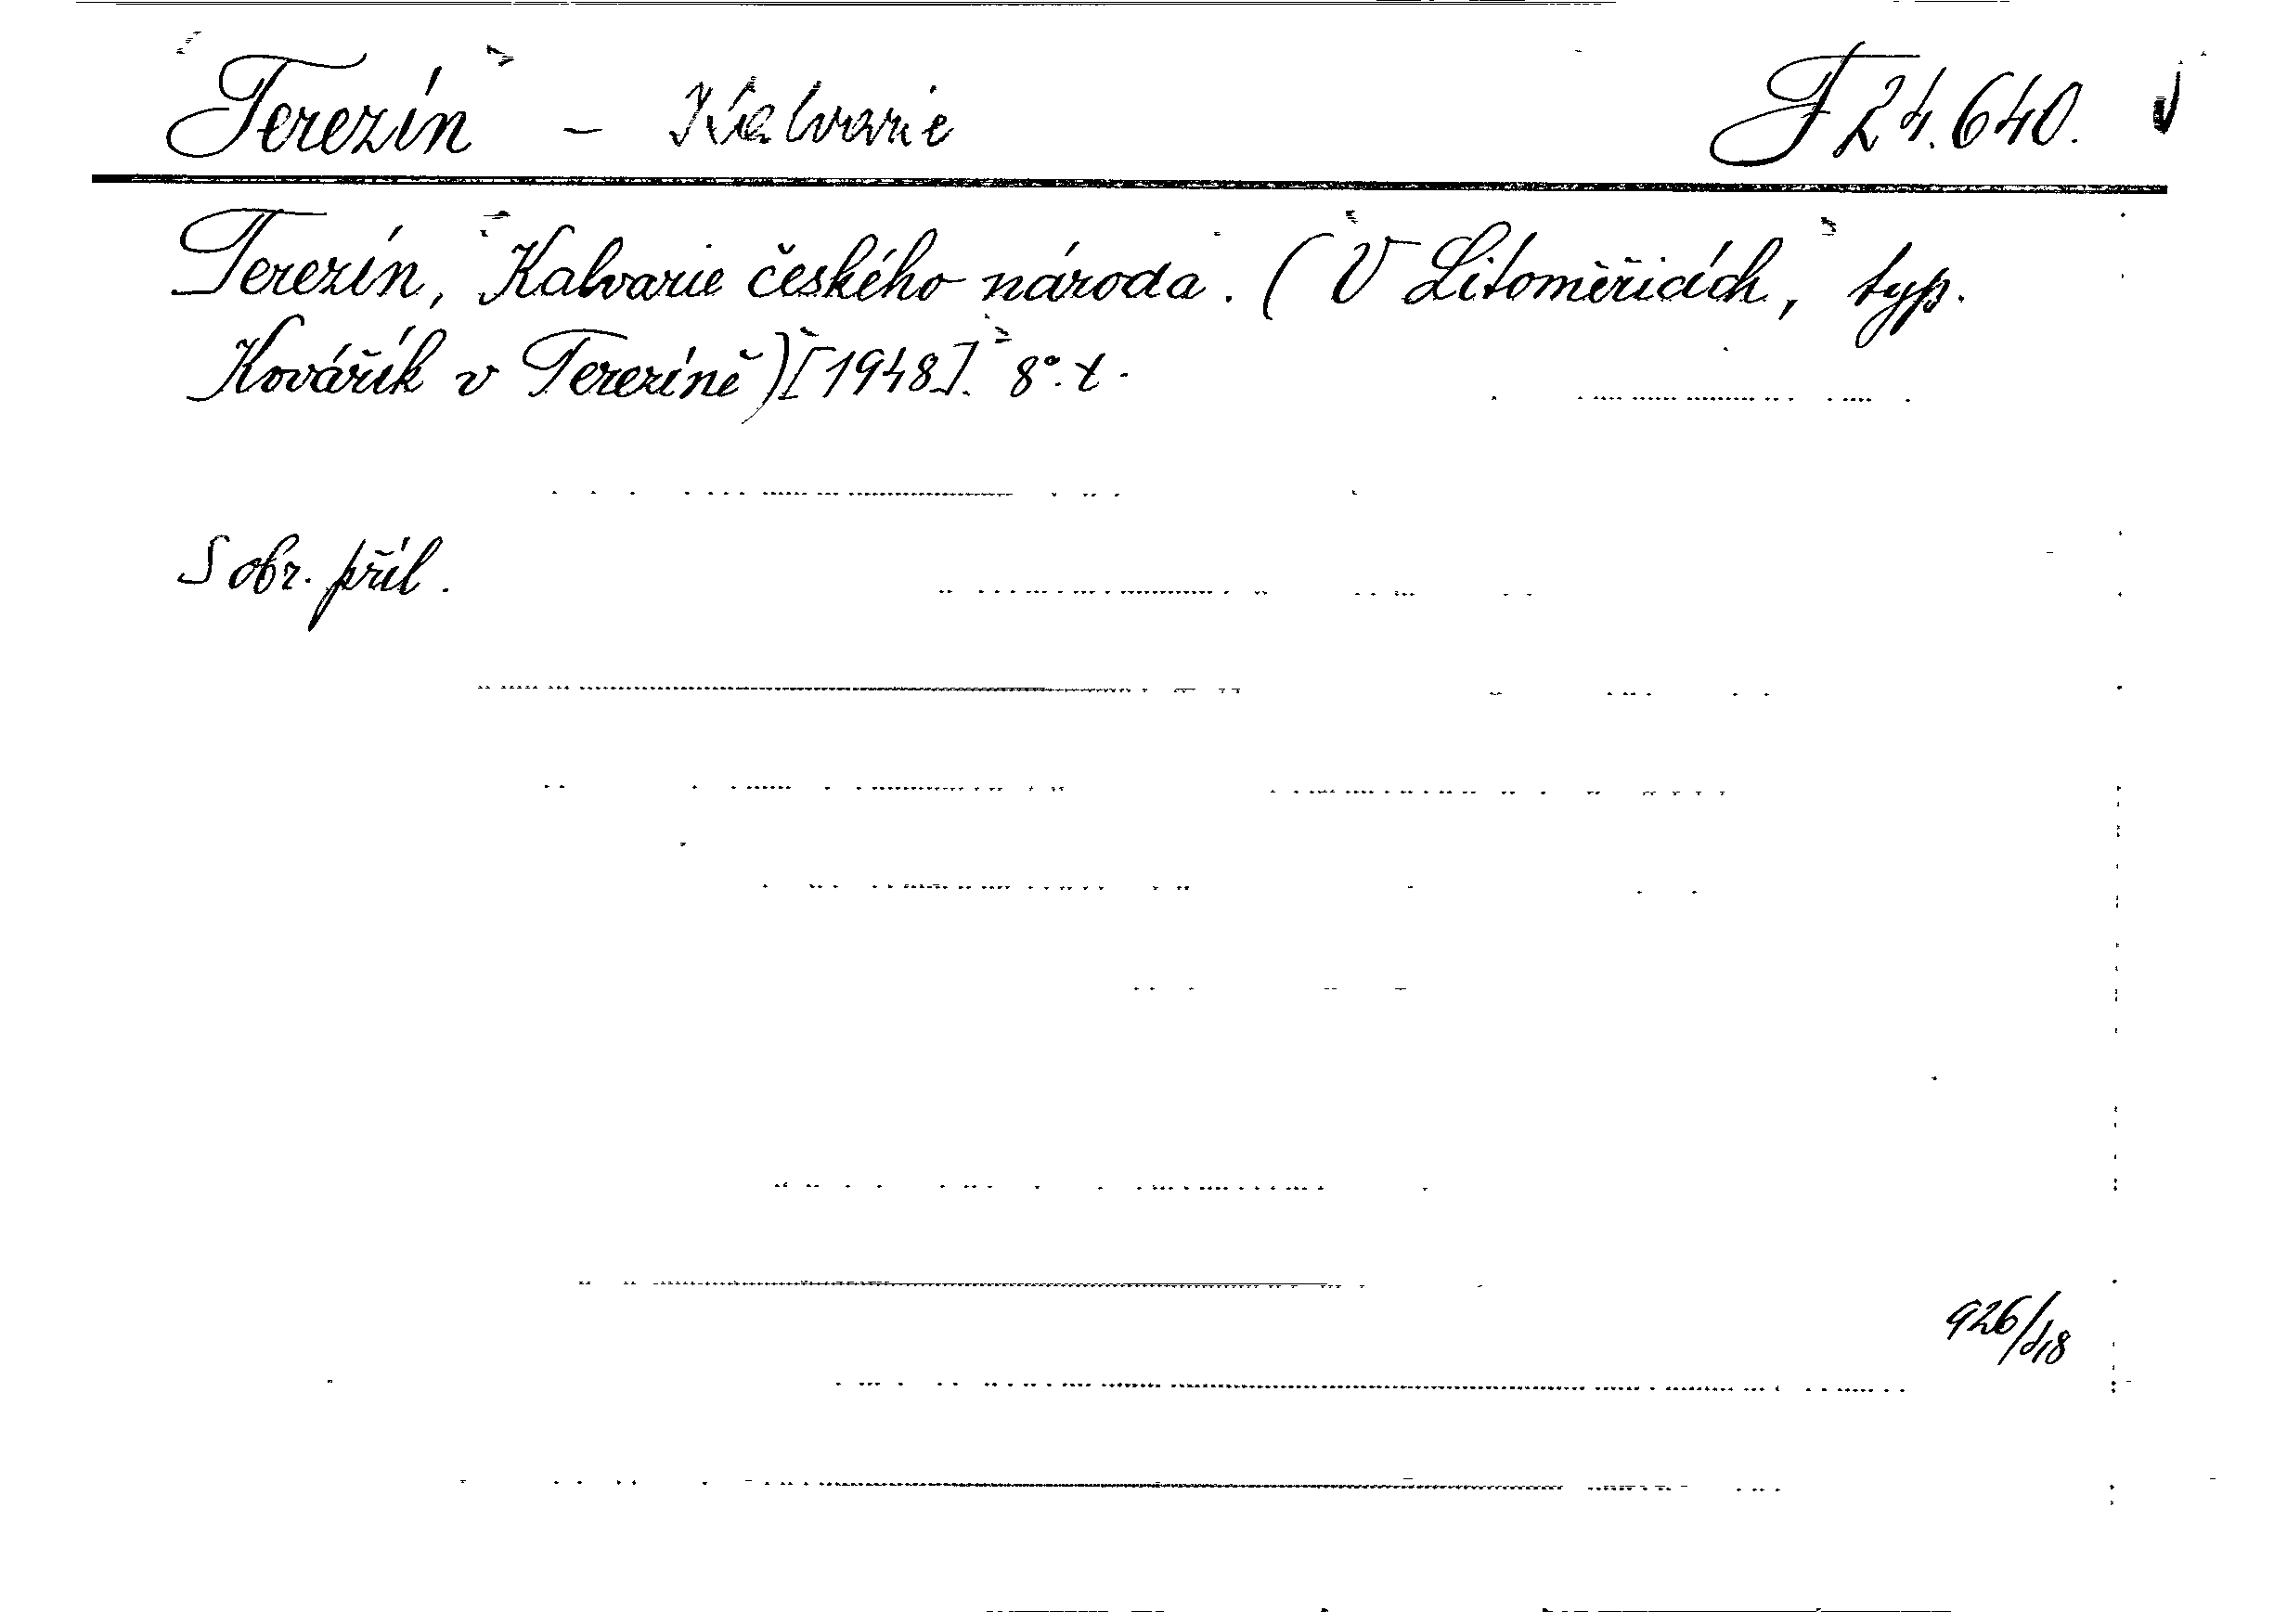 Terezín - Kalvarie F 24.640.
Terezín, Kalvarie českého národa. (V Litoměřicích, typ.
Kovářík v Terezíně) [1948]. 8°. t.
S obr. příl.
926/48